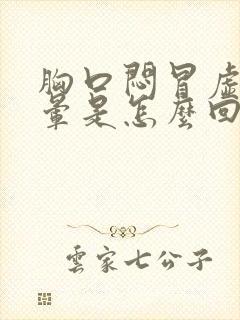 胸口悶冒虛
暈是怎麼回
雲家七公子